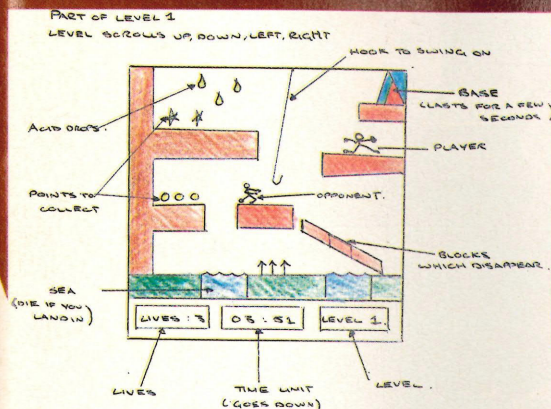 PART OF LEVEL 1
LEVEL SCROLLS UP, DOWN, LEFT, RIGHT
HOOK TO SWING ON
BASE
(LASTS FOR A FEW
SECONDS
ACID DROPS.
PLAYER
POINTS TO
COLLECT
OPPONENT.
BLOCKS
WHICH DISAPPEAR.
SEA
(DIE IF YOU
LAND IN)
LIVES : 3
03 : 51
LEVEL 1.
LIVES
TIME UNIT
(GOES DOWN)
LEVEL.